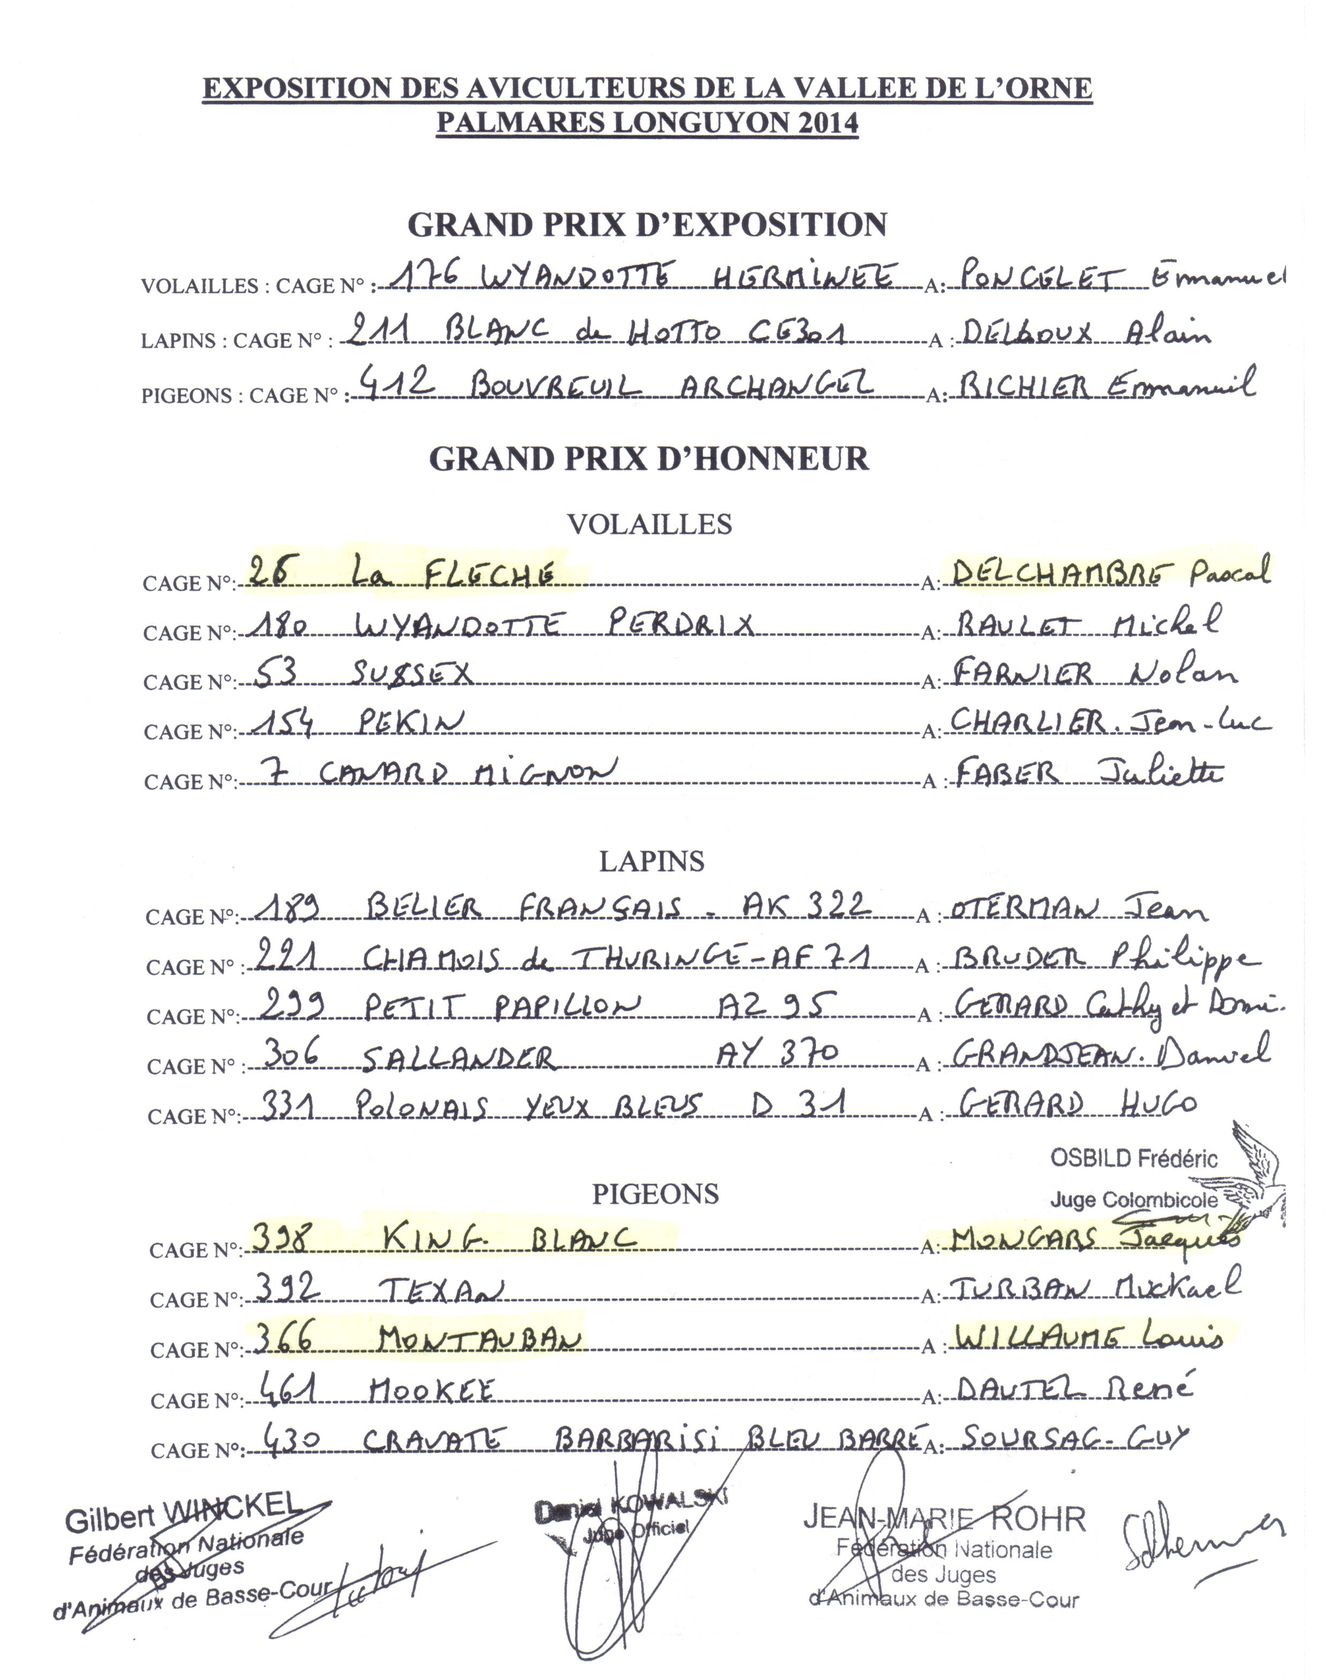 EXPOSITION DES AVICULTEURS DE LA VALLEE DE L'ORNE
PALMARES LONGUYON 2014
GRAND PRIX D'EXPOSITION
VOLAILLES : CAGE N° : 176 WYANDOTTE HERMINEE A: PONCELET Emmanuel
LAPINS : CAGE N° : 211 BLANC de HOTTO CE301 A : DELBOUX Alain
PIGEONS : CAGE N° : 412 BOUVREUIL ARCHANGEL A: RICHIER Emmanuel
GRAND PRIX D'HONNEUR
VOLAILLES
CAGE N°: 26 La FLECHE A: DELCHAMBRE Pascal
CAGE N°: 180 WYANDOTTE PERDRIX A: RAULET Michel
CAGE N°: 53 SUSSEX A: FARNIER Nolan
CAGE N°: 154 PEKIN A: CHARLIER. Jean-Luc
CAGE N°: 7 CANARD MIGNON A : FABER Juliette
LAPINS
CAGE N°: 189 BELIER FRANÇAIS - AK 322 A : OTERMAN Jean
CAGE N° : 221 CHAMOIS de THURINGE - AF 71 A : BRUDER Philippe
CAGE N°: 299 PETIT PAPILLON AZ 95 A : GERARD Cathy et Domi.
CAGE N° : 306 SALLANDER AY 370 A : GRANDJEAN. Daniel
CAGE N°: 331 POLONAIS YEUX BLEUS D 31 A : GERARD HUGO
OSBILD Frédéric
Juge Colombicole
PIGEONS
CAGE N°: 398 KING. BLANC A: MONGARS Jacques
CAGE N°: 392 TEXAN A: TURBAN Mickael
CAGE N°: 366 MONTAUBAN A : WILLAUME Louis
CAGE N°: 461 MOOKEE A: DAUTEL René
CAGE N°: 430 CRAVATE BARBARISI BLEU BARRÉ A: SOURSAC- GUY
Gilbert WINCKEL
Fédération Nationale
des Juges
d'Animaux de Basse-Cour
Daniel KOWALSKI
Juge Officiel
JEAN-MARIE ROHR
Fédération Nationale
des Juges
d'Animaux de Basse-Cour